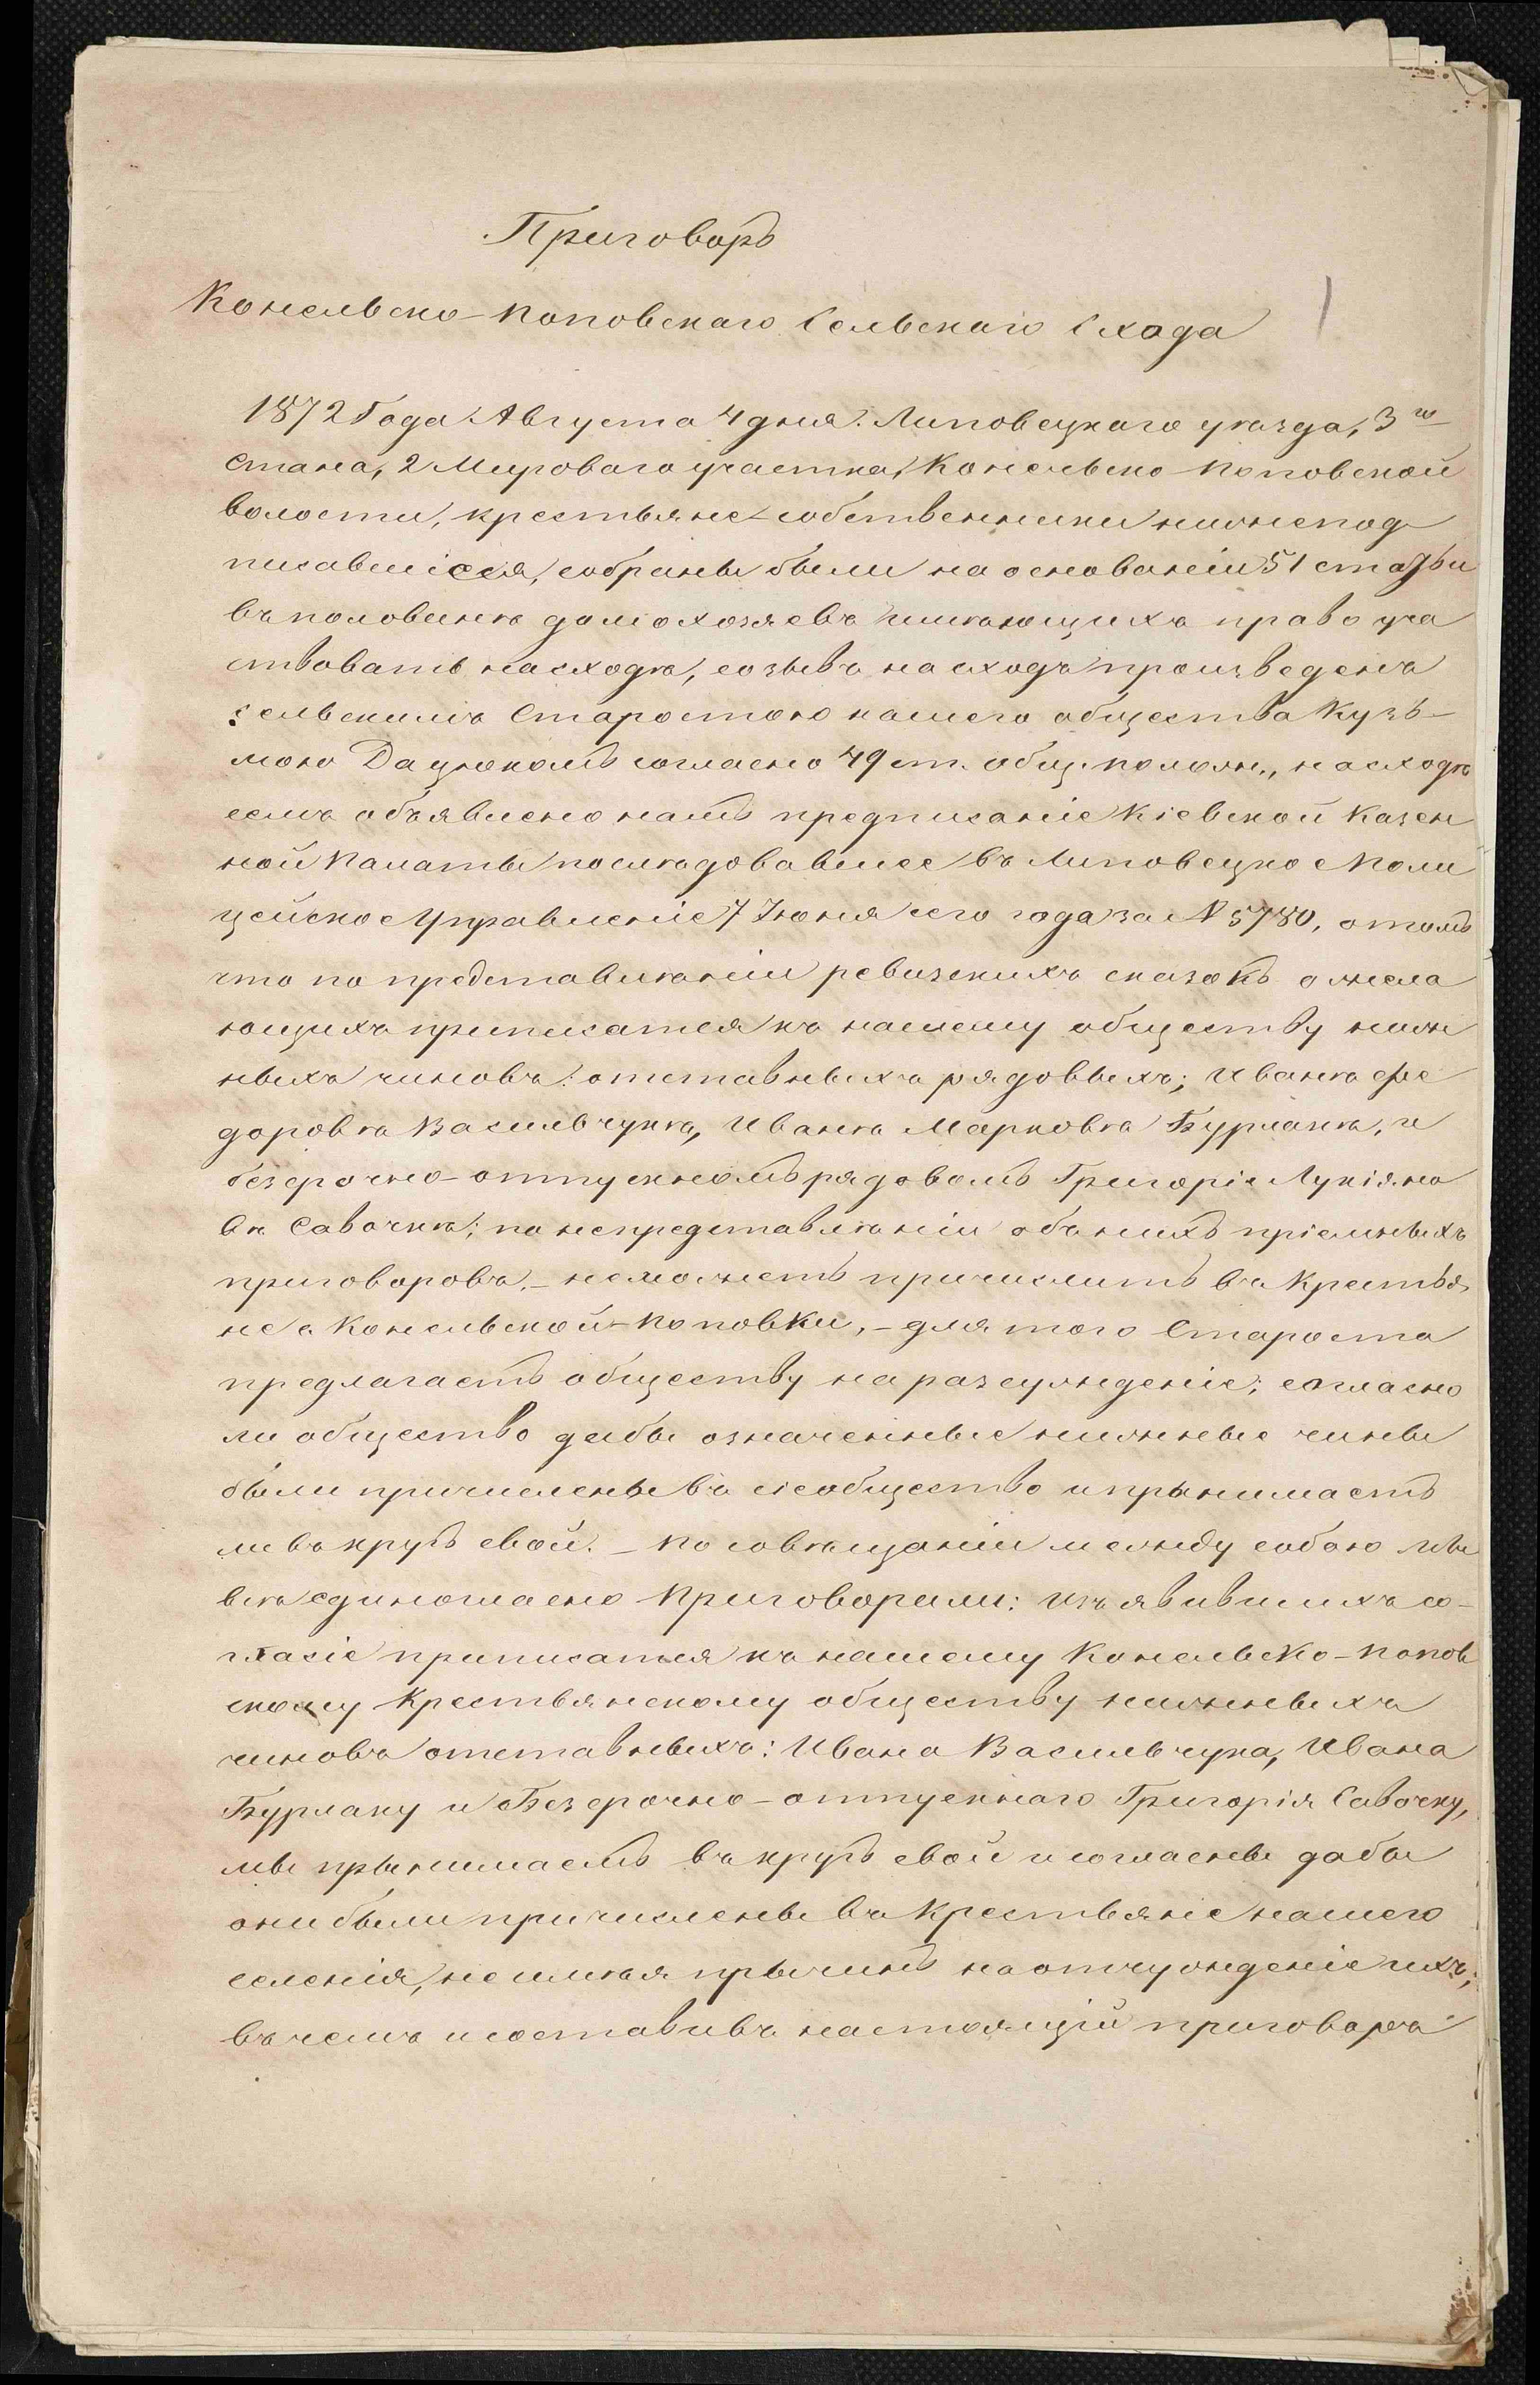 Приговоръ
Конельско-Поповскаго Сельскаго Схода
1
1872 Года Августа 4 дня. Липовецкаго уѣзда, 3го
Стана, 2 Мироваго участка, Конельско-Поповской
волости, крестьяне-собственники нижепод
писавшіеся, собраны были на основаніи 51 статьи
въ половинѣ домохозяевъ имѣющихъ право уча
ствовать на сходѣ, созывъ на сходъ произведенъ
сельскимъ Старостою нашего общества Кузь-
мою Дацюкомъ согласно 49 ст. общ. полож., на сходѣ
семъ объявлено намъ предписаніе Кіевской Казен
ной Палаты послѣдовавшее въ Липовецкое Поли
цейское Управленіе 7 Іюня сего года за № 5780, о томъ
что по представленіи ревизскихъ сказокъ о жела
ющихъ приписатся къ нашему обществу ниж
ныхъ чиновъ: отставныхъ рядовыхъ; Иванѣ Фе
доровѣ Васильчукѣ, Иванѣ Марковѣ Бурлакѣ, и
безсрочно-отпускномъ рядовомъ Григоріе Лукіяно
вѣ Савочкѣ; по непредставленіи объ нихъ пріемныхъ
приговоровъ, - неможетъ причислить въ Крестья
не с. Конельской-Поповки, - для того Староста
предлагаетъ обществу на разсужденіе; согласно
ли общество дабы означенные нижные чины
были причислены въ сіе общество и прынимаетъ
ли въ кругъ свой. - По совѣщаніи между собою мы
всѣ единогласно Приговорили: изъявившихъ со-
гласіе приписатся къ нашему Конельско-Попов
скому Крестьянскому обществу нижныхъ
чиновъ отставныхъ: Ивана Васильчука, Ивана
Бурлаку и Безсрочно-отпускнаго Григорія Савочку,
мы прынимаемъ въ кругъ свой и согласны дабы
они были причислены въ Крестьяне нашего
селенія, не имѣя прычинъ на отчужденіе ихъ;
въ чемъ и составивъ настоящій приговоръ